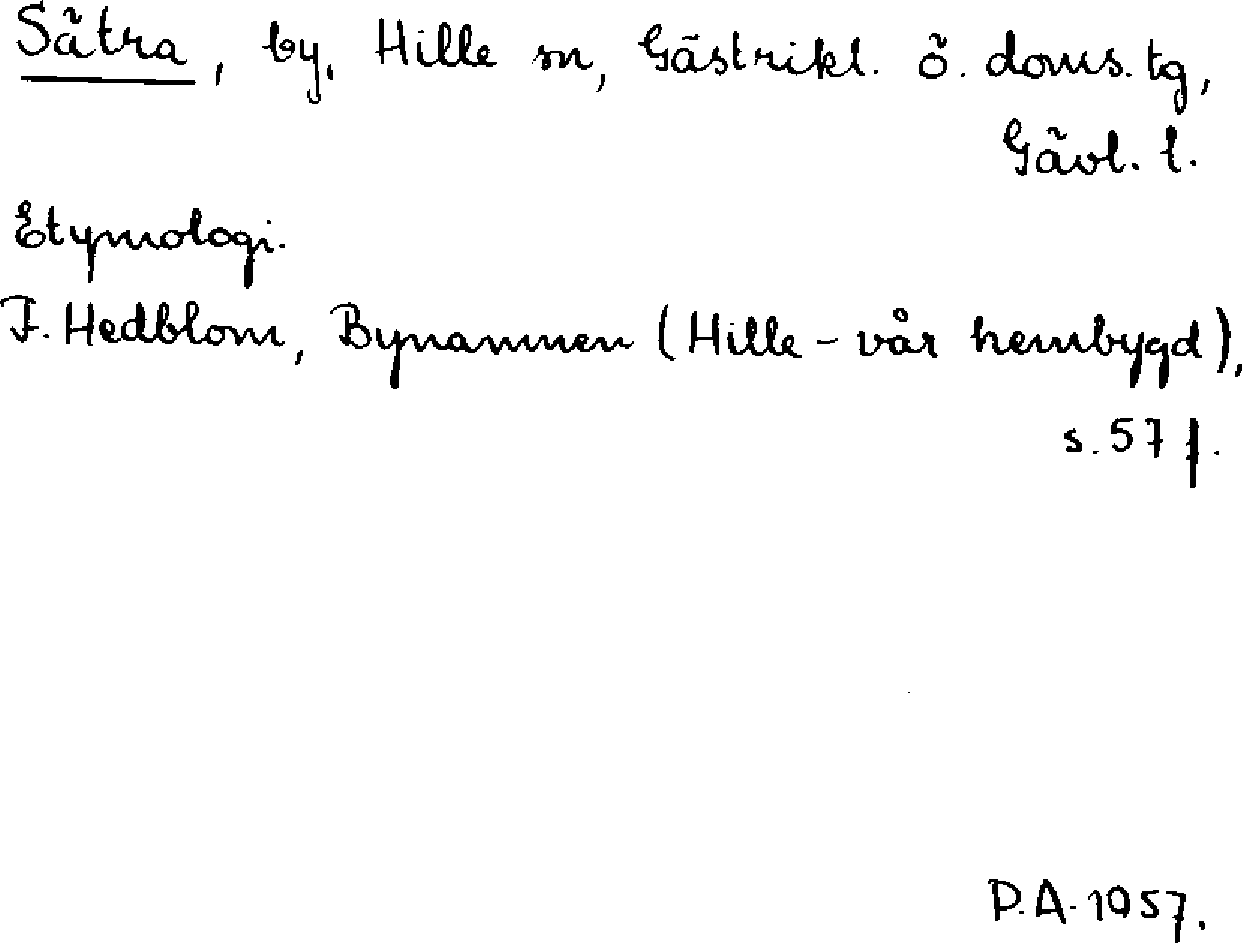 Sätra, by, Hille sn, Gästrikl. ö. doms. tg,
Gävl. l.
Etymologi.
F. Hedblom, Bynamnen (Hille - vår hembygd),
s. 57 f.
P.A. 1957.